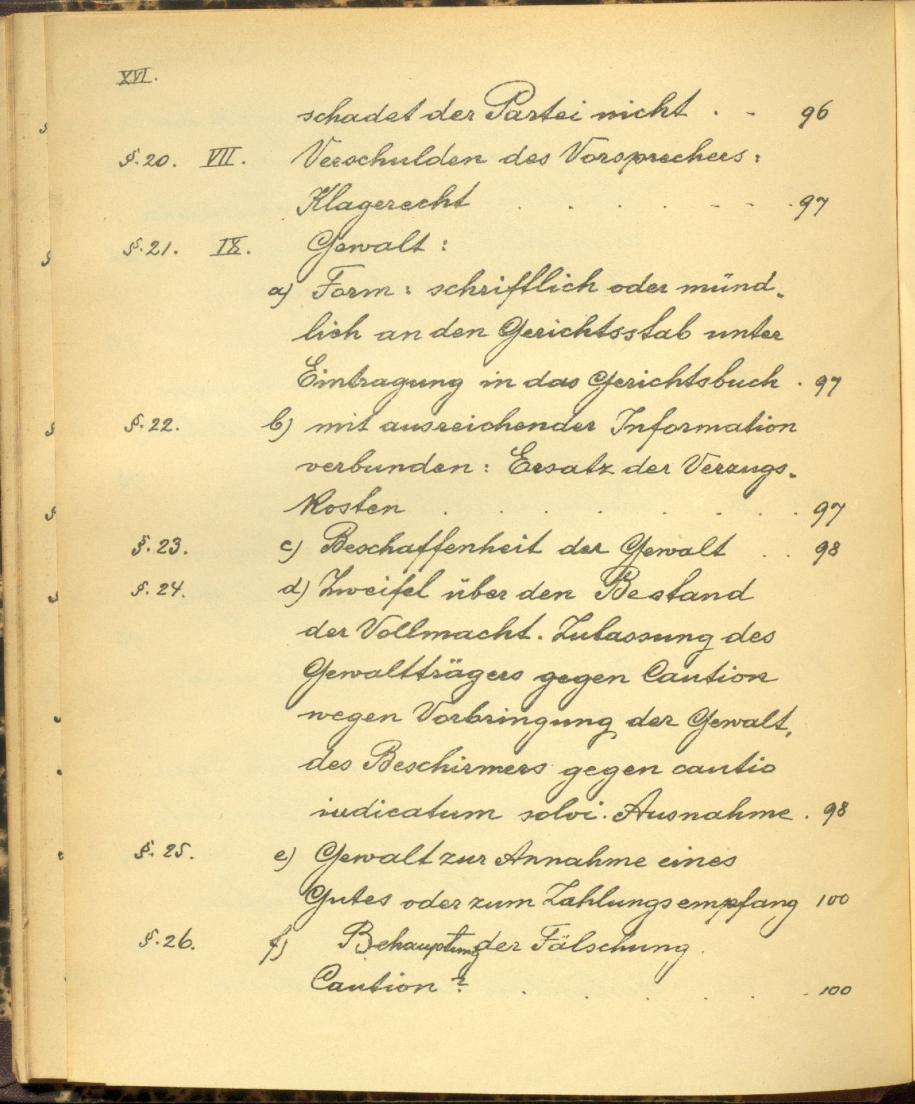 XVI.
schadet der Partei nicht . - 96
§.20. VII. Verschulden des Vorsprechers:
Klagerecht . . . . - - - . 97
§.21. IX. Gewalt:
a) Form: schriftlich oder münd-
lich an den Gerichtsstab unter
Eintragung in das Gerichtsbuch . 97
§.22. b) mit ausreichender Information
verbunden: Ersatz der Verzugs-
kosten . . . . . . . 97
§.23. c) Beschaffenheit der Gewalt . . 98
§.24. d) Zweifel über den Bestand
der Vollmacht. Zulassung des
Gewaltträgers gegen Caution
wegen Vorbringung der Gewalt,
des Beschirmers gegen cautio
iudicatum solvi. Ausnahme . 98
§.25. e) Gewalt zur Annahme eines
Gutes oder zum Zahlungsempfang 100
§.26. f) Behauptung der Fälschung.
Caution? . . . . . 100